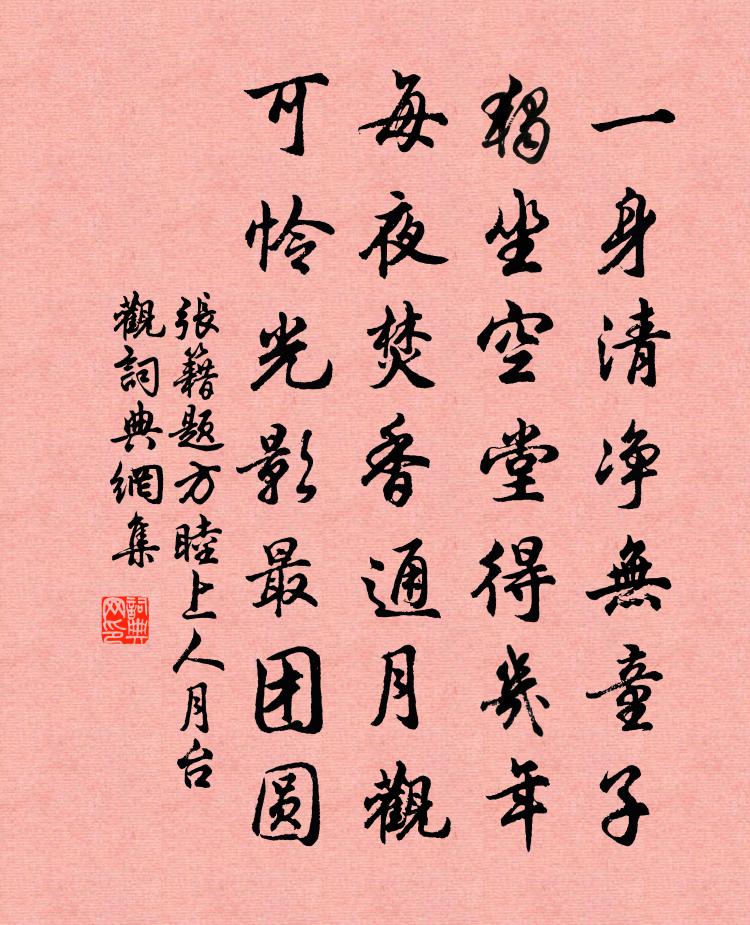 一身清净無童子
獨坐空堂得幾年
每夜焚香通月觀
可怜光影最团圆
張籍題方睦上人月台
觀詞典網集
詞典网印